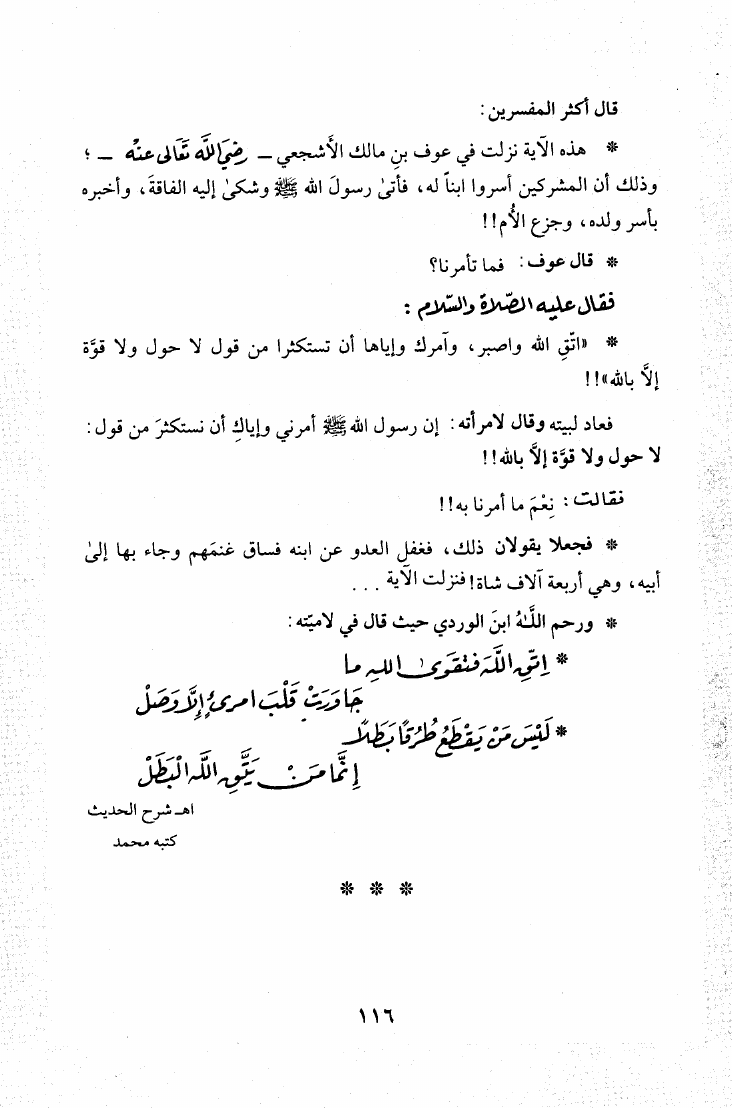 قال أكثر المفسرين :
* هذه الآية نزلت في عوف بنِ مالك الأشجعي ــ رضيَ اللَّه تعَالى عنْه ــ ؛
وذلك أن المشركين أسروا ابناً له، فأتىٰ رسولَ الله ﷺ وشكىٰ إليه الفاقةَ، وأخبره
بأسر ولده، وجزع الأُم!!
* قال عوف : فما تأمرنا؟
فقال عليه الصّلاة والسّلام :
* «اتّقِ الله واصبر، وآمرك وإياها أن تستكثرا من قول لا حول ولا قوَّة
إلاَّ بالله»!!
فعاد لبيته وقال لامرأته : إن رسول الله ﷺ أمرني وإياكِ أن نستكثرَ من قول :
لا حول ولا قوَّة إلاَّ بالله!!
فقالت : نِعْمَ ما أمرنا به!!
* فجعلا يقولان ذلك، فغفل العدو عن ابنه فساق غنمَهم وجاء بها إلىٰ
أبيه، وهي أربعة آلاف شاة! فنزلت الآية . . .
* ورحم اللَّهُ ابنَ الوردي حيث قال في لاميّته :
* اِتّقِ اللَّهَ فتقوَىٰ اللهِ ما
جَاوَرَتْ قَلْبَ امرئٍ إلَّا وَصَلْ
* لَيْسَ مَنْ يَقْطَعُ طُرُقًا بَطَلًا
إِنَّمَا مَنْ يَتَّقِي اللَّهَ الْبَطَلْ
اهـ شرح الحديث
كتبه محمد
* * *
١١٦